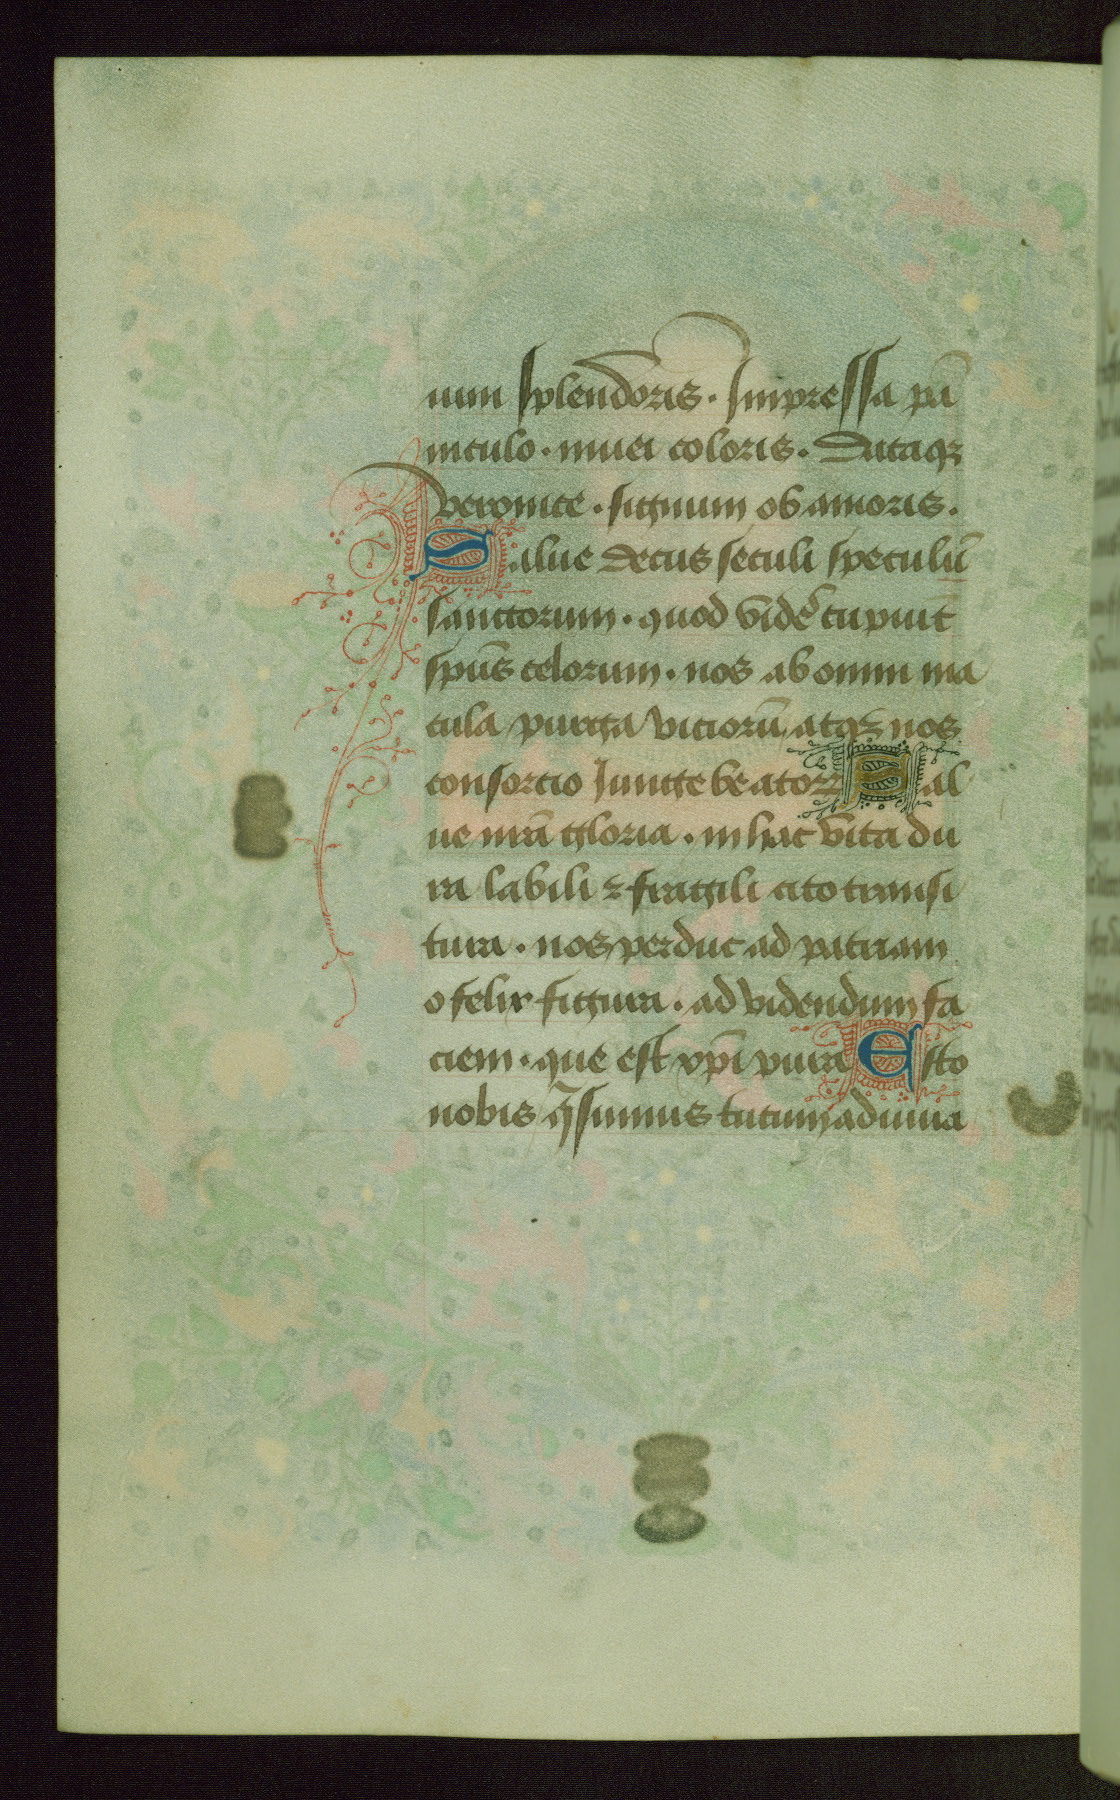 num splendoris . Impressa pā
niculo . niuei coloris . Dataqꝫ
veronice . signum ob amoris .
Salue decus seculi speculū
sanctorum . quod vidē cupiūt
spūs celorum . nos ab omni ma
cula purga viciorū atqꝫ nos
consorcio Iunge beatoꝝ Sal
ue nrā gloria . in hac vita du
ra labili ⁊ fragili cito transi
tura . nos perduc ad patriam
o felix figura . ad videndum fa
ciem . que est xp̄i pura Esto
nobis q̄sumus tutum adiuua